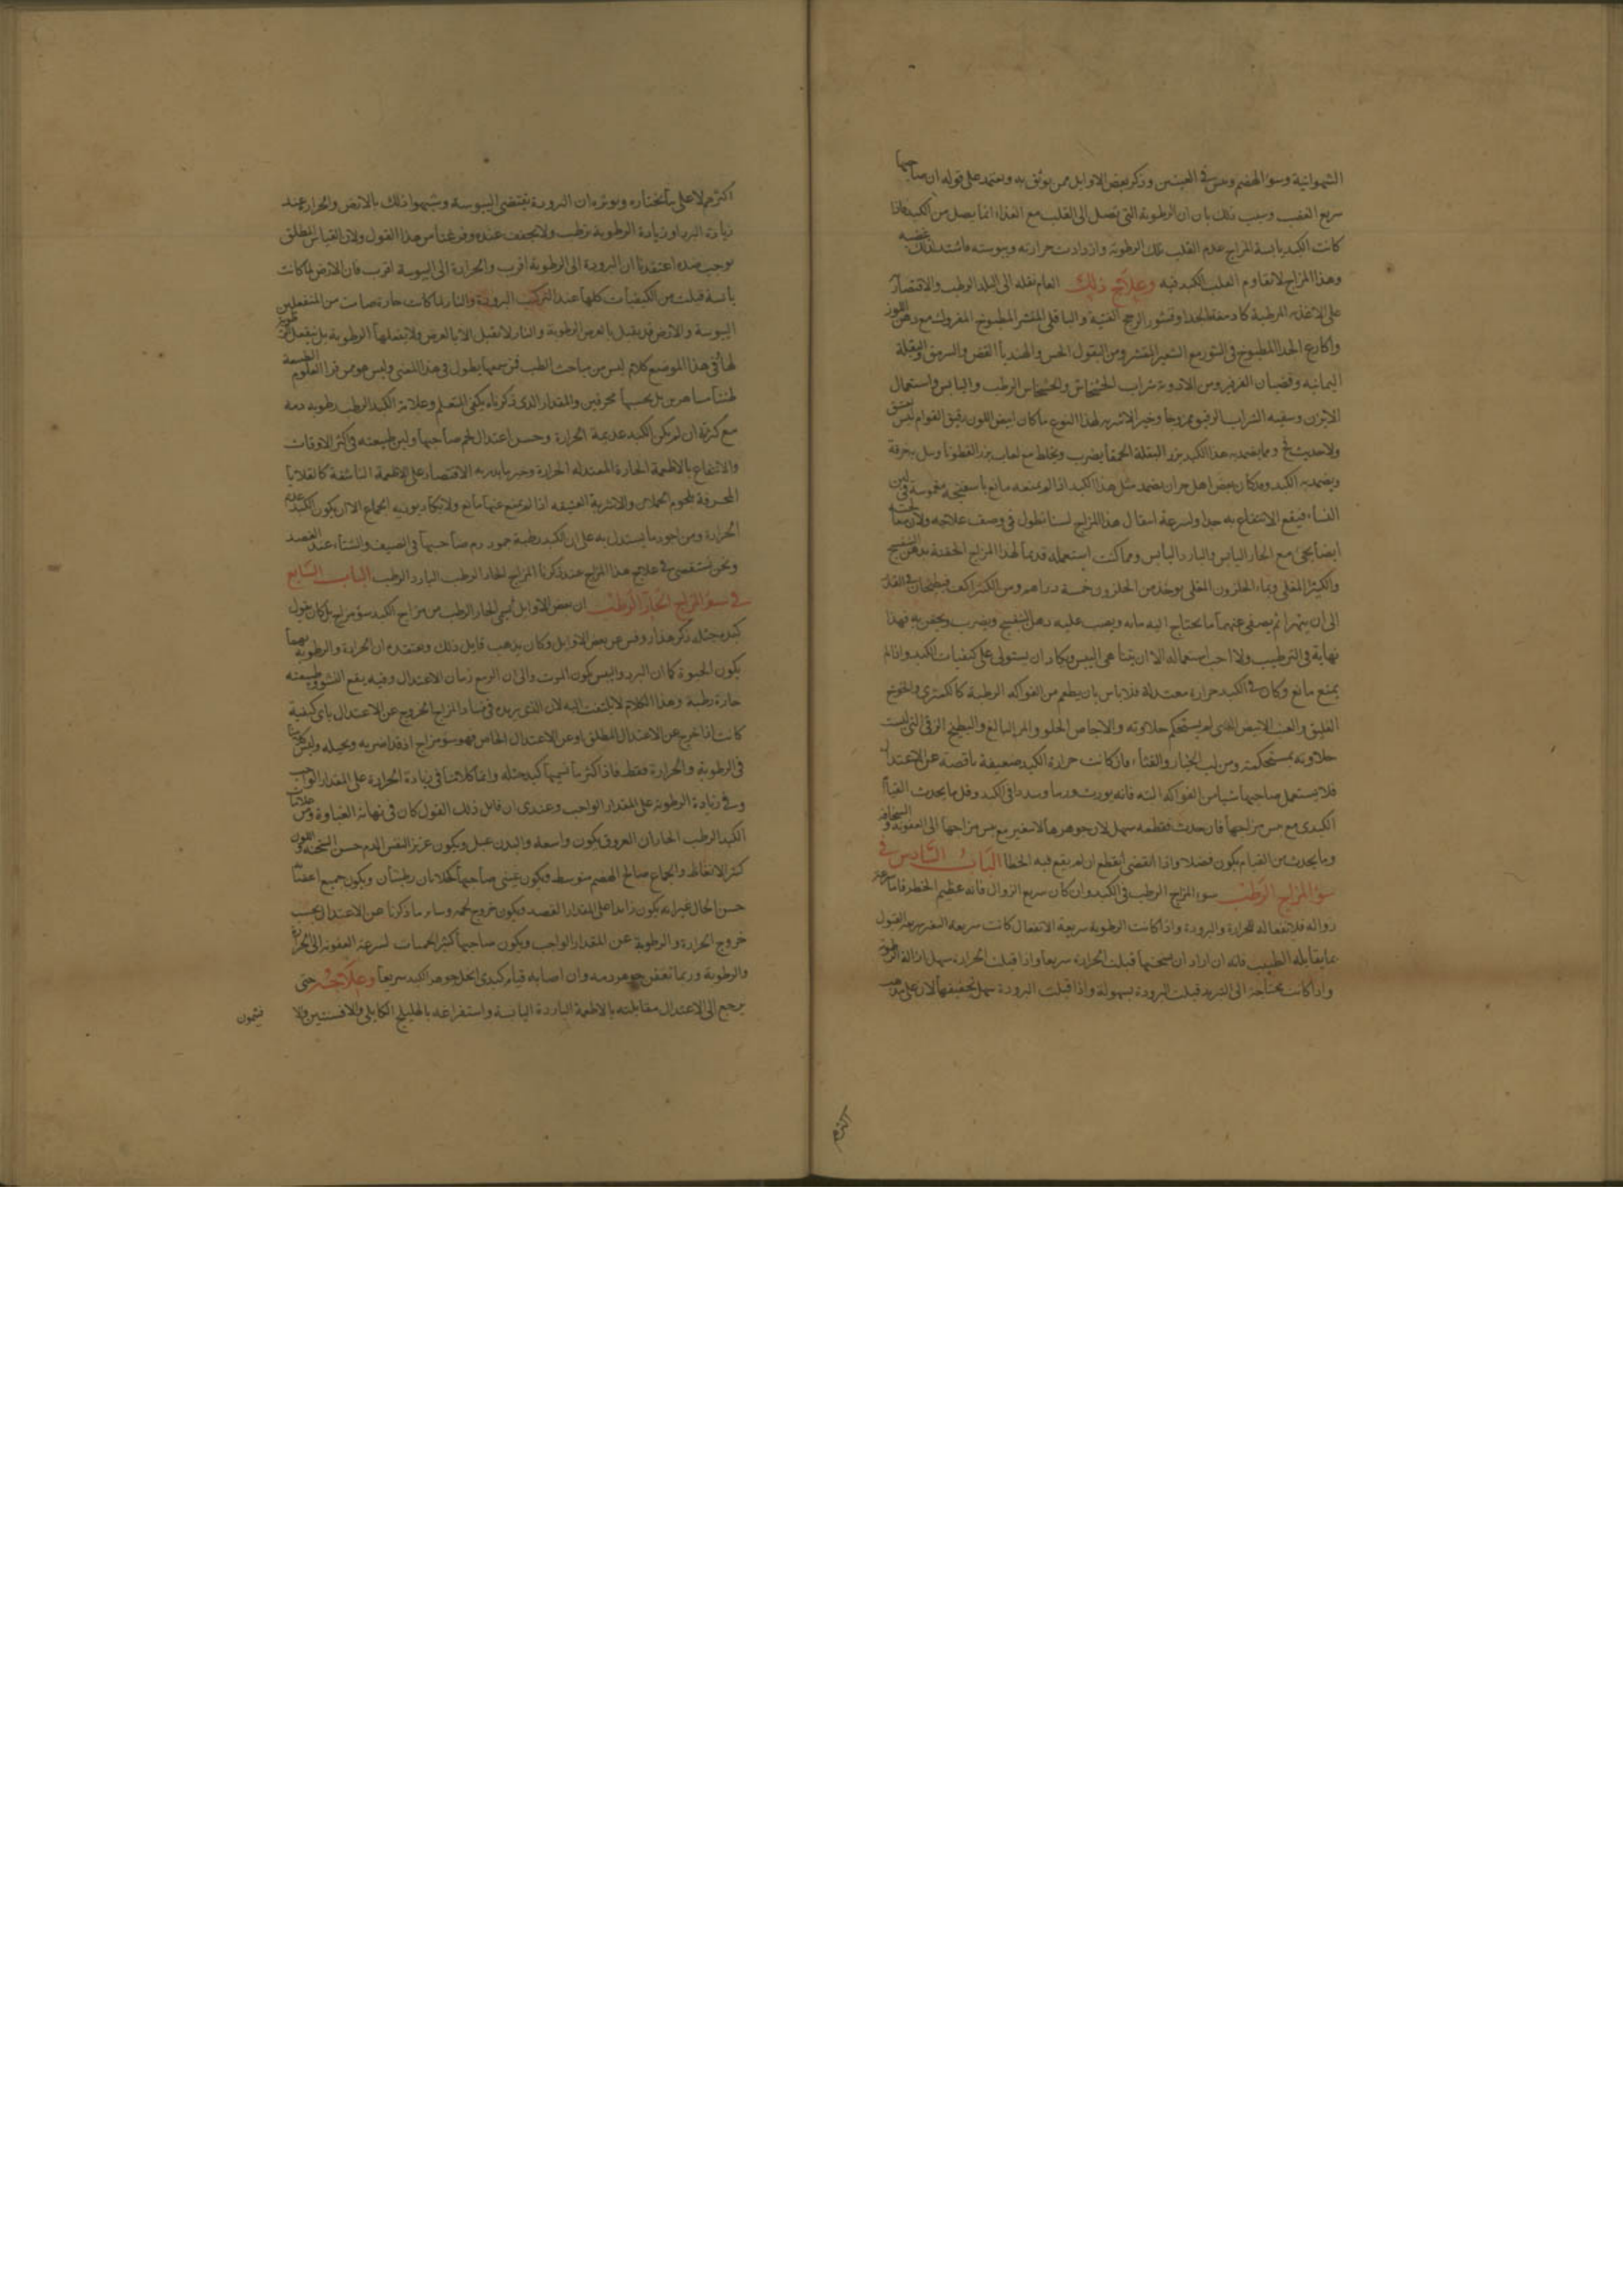 الشهوانية وسوء الهضم وذكر بعض الاوابل ممن يوثق به ويعتمد على قوله ان صاحبها
سريع الغضب وسبب ذلك بان ان الرطوبة التى تصل الى القلب مع الغذاء انما يصل من الكبد فاذا
كانت الكبد يابسة المزاج عدم القلب تلك الرطوبة وازدادت حرارته ويبوسته فاشتد لذلك غضبه
وهذا المزاج لا يقاوم القلب الكبد فيه وعلاج ذلك العام نقله الى البلد الرطب والاقتصار
على الاغذية المرطبة وقشور الفتية والباقلى المقشر المطبوخ المفروك مع دهن اللوز
واكارع الجدا المطبوخ فى التنور مع الشعير المقشر ومن البقول الخس والهندبا الغض والسرمق والبقلة
اليمانية وقضبان ومن الادوية شراب الخشخاش والخشخاش الرطب واليابس واستعمال
الابزن وسقيه الشراب الرقيق ممزوجا وخير الاشربه لهذا النوع ما كان ابيض اللون رقيق القوام ليس بعتيق
ولا حديث ومما يضمد به هذا الكبد بزر البقلة الحمقا يضرب ويخلط مع لعاب بزر القطونا ويبل به خرقة
ويضمد به الكبد وقد كان بعض اهل حران يضمد مثل هذا الكبد اذا لم يمنعه مانع باسفنجة مغموسة فى لبن
فيقع الانتفاع به جدا ولسرعة انتقال هذا المزاج لسنا نطول فى وصف علاجه
ايضا يجئ مع الحار اليابس والبارد اليابس ومما كنت استعمله قديما لهذا المزاج الحقنة بدهن البنفسج
وماء الحلزون المغلى يوخذ من الحلزون خمسة دراهم ومن كف فيطبخان فى القدر
الى ان يتهرا ثم يصفى عنهما ما يحتاج اليه مايه ويصب عليه دهن البنفسج ويضرب ويحقن به فهذا
نهاية فى الترطيب ولا احب استعماله الا ان يتناهى اليبس ويكاد ان يستولى على كيفيات الكبد واذا لم
يمنع مانع وكان فى الكبد حرارة معتدلة فلا باس بان يطعم من الفواكه الرطبة كالكمثرى والخوخ
والعنب الابيض الذى لم يستحكم حلاوته والاجاص الحلو والمر البالغ والبطيخ الرقى التى ليست
حلاوته بمستحكمة ومن لب الخيار والقثاء فان كانت حرارة الكبد ضعيفة ناقصة عن الاعتدال
فلا يستعمل صاحبها شيا من الفواكه البتة فانه يورث ورما وسددا فى الكبد وقل ما يحدث القيام
الكبدى مع يبس مزاجها فان حدث فقطعه سهل لان جوهرها لا يتغير مع يبس مزاجها الى العفونة
وما يحدث من القيام يكون فضلا واذا انقضى انقطع ان لم يقع فيه الخطا الباب السادس فى
سؤ المزاج الرطب سوء المزاج الرطب فى الكبد وان كان سريع الزوال فانه عظيم الخطر فاما سرعة
زواله فلانفعاله للحرارة والبرودة واذا كانت الرطوبة سريعة الانفعال كانت سريعة التغير سريعة القبول
بما يقابله الطبيب فانه ان اراد ان يسخنها قبلت الحرارة سريعا واذا قبلت الحرارة سهل ازالة الرطوبة
واذا كانت محتاجة الى التبريد قبلت البرودة بسهولة واذا قبلت البرودة سهل تجفيفها لان على مذهب
اكثرهم
اكثرهم لا على ما نختاره ونوثره ان البرودة تقتضى اليبوسة وشبهوا ذلك بالارض والحرارة عند
زيادة البرد او زيادة الرطوبة ترطب ولا تجفف عنده وفرغنا من هذا القول ولان القياس المطلق
يوجب ضده اعتقدنا ان البرودة الى الرطوبة اقرب والحرارة الى اليبوسة اقرب فان الارض لما كانت
يابسة قبلت من الكيفيات كلها عند التركيب البرودة والنار لما كانت حارة صارت من المنفعلين
اليبوسة والارض قد يقبل بالعرض الرطوبة والنار لا تقبل الا بالعرض ولا بفعلها الرطوبة بل
لها فى هذا الموضع كلام ليس من مباحث الطب يطول فى هذا المعنى وليس هو ممن قرا العلوم الطبيعية
والمقدار الذى ذكرناه يكفى المتعلم وعلامة الكبد الرطب رطوبة دمه
مع كثرته ان لم يكن الكبد عديمة الحرارة وحسن اعتدال لحم صاحبها ولين طبيعته فى اكثر الاوقات
والانتفاع بالاطعمة الحارة المعتدلة الحرارة وخير ما يدبر به الاقتصار على الاطعمة الناشفة كالقلايا
المحرقة بلحوم الحملان والاشربة العتيقة اذا لم يمنع عنها مانع ولا يكاد يوذيه الجماع الا ان يكون الكبد عديم
الحرارة ومن اجود ما يستدل به على ان الكبد رطبة جمود دم صاحبها فى الصيف والشتاء عند الفصد
ونحن نستقصى فى علاج هذا المزاج عند ذكرنا المزاج الحار الرطب البارد الرطب الباب السابع
فى سؤ المزاج الحار الرطب ان بعض الاوايل لم يسمى الحار الرطب من مزاج الكبد سؤ مزاج بل كان يقول
كبد جثله ذكر هذا روفس عن بعض الاوايل وكان يذهب قايل ذلك ويعتقد ان الحرارة والرطوبة بهما
يكون الحيوة كما ان البرد واليبس يكون الموت والى ان الربيع زمان الاعتدال وفيه يقع النشو وطبيعته
حارة رطبة وهذا الكلام لا يلتفت اليه لان الذى نريده فى فساد المزاج الخروج عن الاعتدال باى كيفية
كانت اذا خرج عن الاعتدال المطلق او عن الاعتدال الخاص فهو سؤ مزاج اذ قد اضر به ويحيله وليس كلامنا
فى الرطوبة والحرارة فقط وانما كلامنا فى زيادة الحرارة على المقدار الواجب
وفى زيادة الرطوبة على المقدار الواجب وعندى ان قايل ذلك القول كان فى نهاية الغباوة ومن علامات
الكبد الرطب الحار ان العروق يكون واسعة والبدن عبل ويكون غزير النفس الدم حسن السحنه واللون
كثير الانعاظ والجماع صالح الهضم متوسط ويكون عينى صاحبها كحلاوان رطبتان ويكون جميع اعضائه
حسن الحال غير انه يكون زايدا على المقدار القصد ويكون خروج لحمه وساير ما ذكرنا عن الاعتدال بحسب
خروج الحرارة والرطوبة عن المقدار الواجب ويكون صاحبها كثير الحميات لسرعة العفونة الى الحرارة
والرطوبة وربما تعفن جوهر دمه وان اصابه قيام كبدى انحل جوهر الكبد سريعا وعلاجه حتى
يرجع الى الاعتدال مقابلته بالاطعمة الباردة اليابسة واستفراغه بالهليلج الكابلى والافسنتين والا
فتيمون